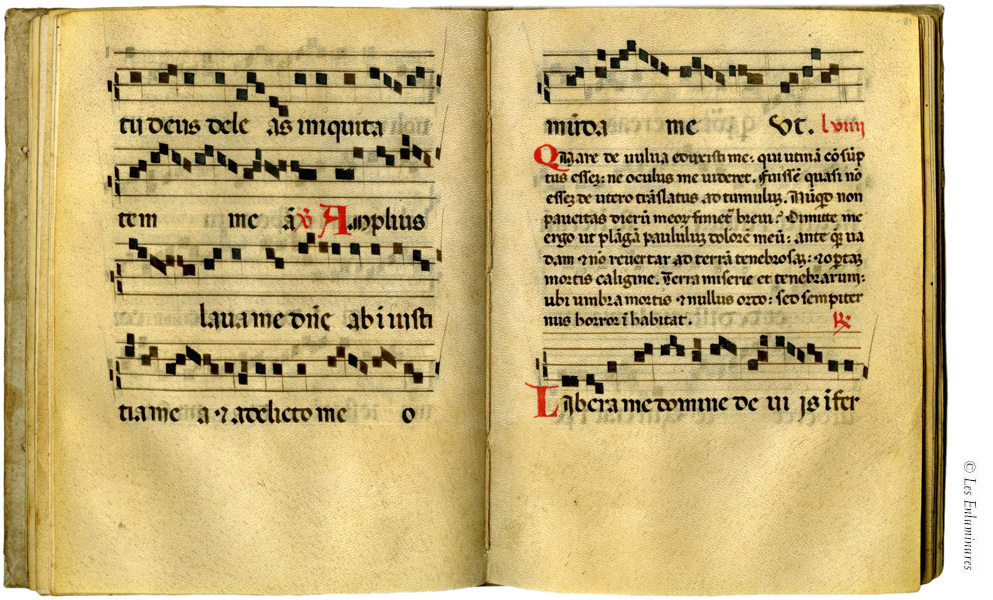 tu deus dele as iniquita
tem me ā ℣ Amplius
laua me dn̄e ab iniusti
tia me a ⁊ a delicto me o
mūda me Vt. l viiii
Quare de uulua eduxisti me: qui utinā cōsūp
tus essez: ne oculus me uideret. Fuissē quasi nō
essez de utero trāslatus ad tumulus. Nūqd non
paucitas dierū meoꝝ finiet᷑ breui? Dimitte me
ergo ut plāgā paululuz dolorē meū: ante q̄ ua
dam ⁊ nō reuertar ad terrā tenebrosaz: ⁊ optaz
mortis caligine. Terra miserie et tenebrarum:
ubi umbra mortis ⁊ nullus ordo: sed sempiter
nus horror ī habitat. ℟
Libera me domine de ui is īfer
© Les Enluminures